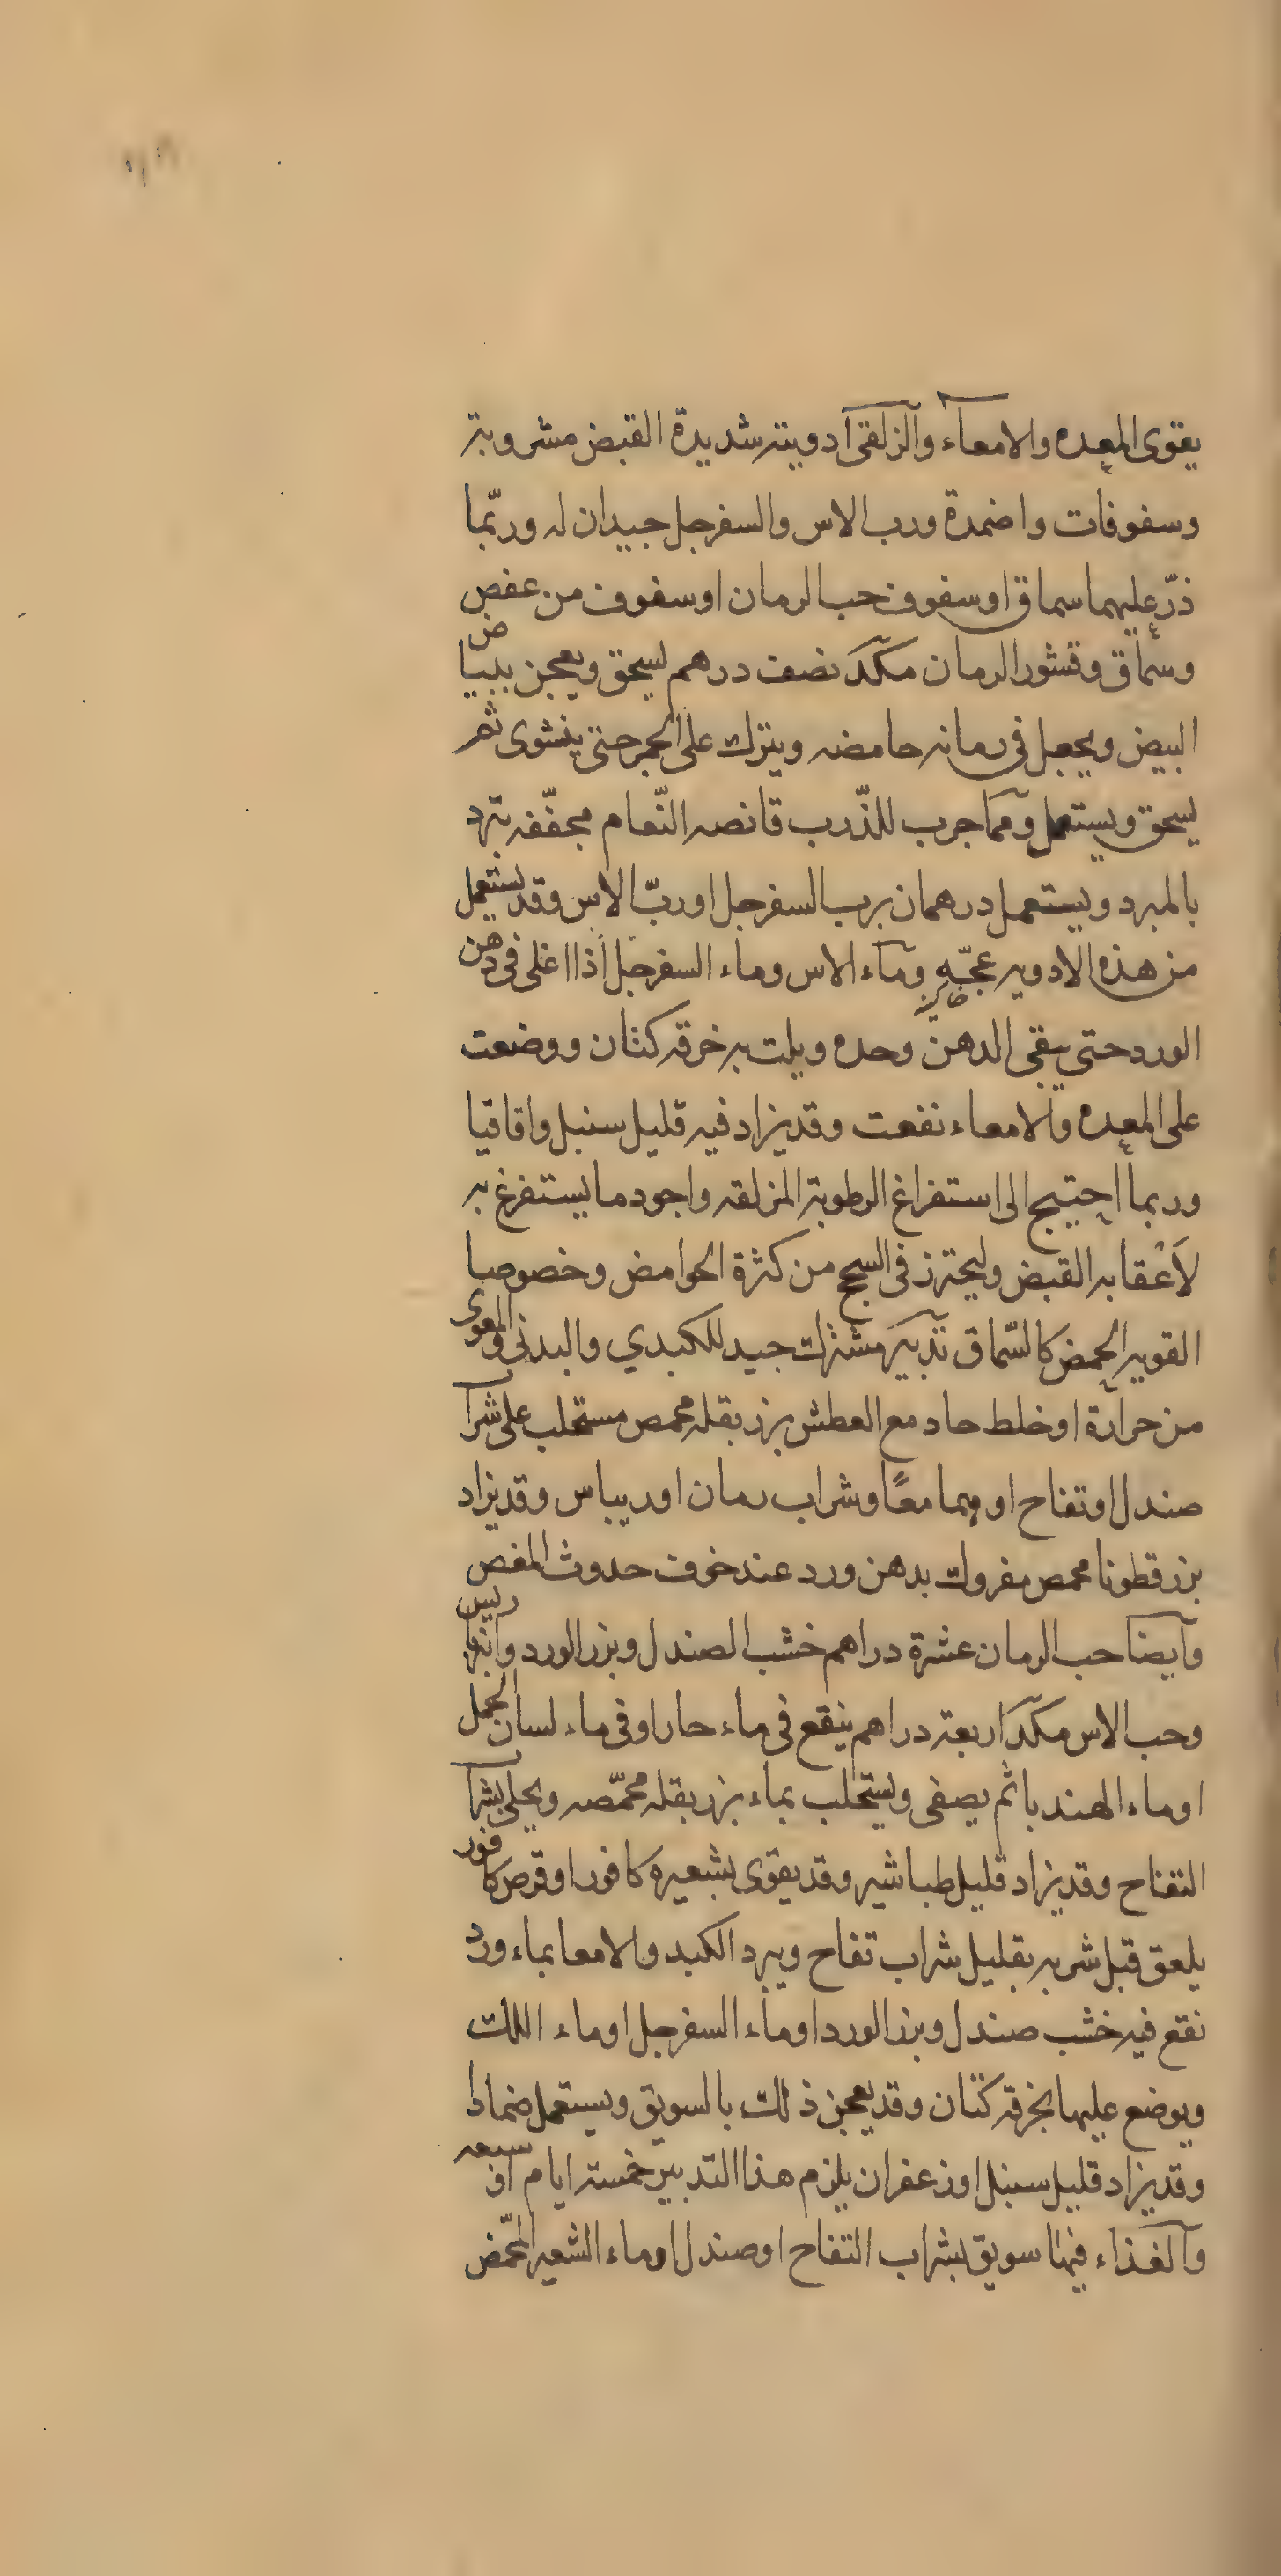 يقوى المعده والامعاء والزلقى ادوية شديدة القبض مشروبة
وسفوفات واضمدة ورب الاس والسفرجل جيدان له وربّما
ذرّ عليهما سماق او سفوف حب الرمان او سفوف من عفص
وسماق وقشور الرمان مكد نصف درهم يسحق ويعجن ببياض
البيض ويجعل فى رمانه حامضه ويترك على الجمر حتى ينشوى ثم
يسحق ويستعمل ومما جرب للذّرب قانصه النّعام مجفّفه تبرد
بالمبرد ويستعمل درهمان برب السفرجل او ربّ الاس وقد يستعمل
من هذه الادويه عجّه وماء الاس وماء السفرجل اذا اغلى فى دهن
الورد حتى يبقى الدهن وحده ويلت به خرقه كتان ووضعت
على المعده والامعاء نفعت وقد يزاد فيه قليل سنبل واقاقيا
وربما احتيج الى استفراغ الرطوبة المزلقه واجود ما يستفرغ به
لاَعْقابه القبض وليحترز فى السحج من كثرة الحوامض وخصوصا
القويه الحمض كالسّماق تدبير مشترك جيد للكبدي والبدنى والمعوى
من حرارة او خلط حاد مع العطش بزر بقله محمص مستحلب على شراب
صندل او تفاح او بهما معًا وشراب رمان او ريباس وقد يزاد
بزر قطونا محمص مفروك بدهن ورد عند خوف حدوث المغص
وايضا حب الرمان عشرة دراهم خشب الصندل وبزر الورد وانبرباريس
وحب الاس مكد اربعة دراهم ينقع فى ماء حار او فى ماء لسان الحمل
او ماء الهندبا ثم يصفى ويستحلب بماء بزر بقله محمّصه ويحلى بشراب
التفاح وقد يزاد قليل طباشير وقد يقوى بشعيره كافور او قرص كافور
يلعق قبل شربه بقليل شراب تفاح ويبرد الكبد والامعا بماء ورد
نقع فيه خشب صندل وبزر الورد او ماء السفرجل او ماء اللك
ويوضع عليها بخرقة كتان وقد يعجن ذلك بالسويق ويستعمل ضمادا
وقد يزاد قليل سنبل او زعفران يلزم هذا التدبير خمسة ايام او سبعه
والغذاء فيها سويق بشراب التفاح او صندل او ماء الشعير المحمّض